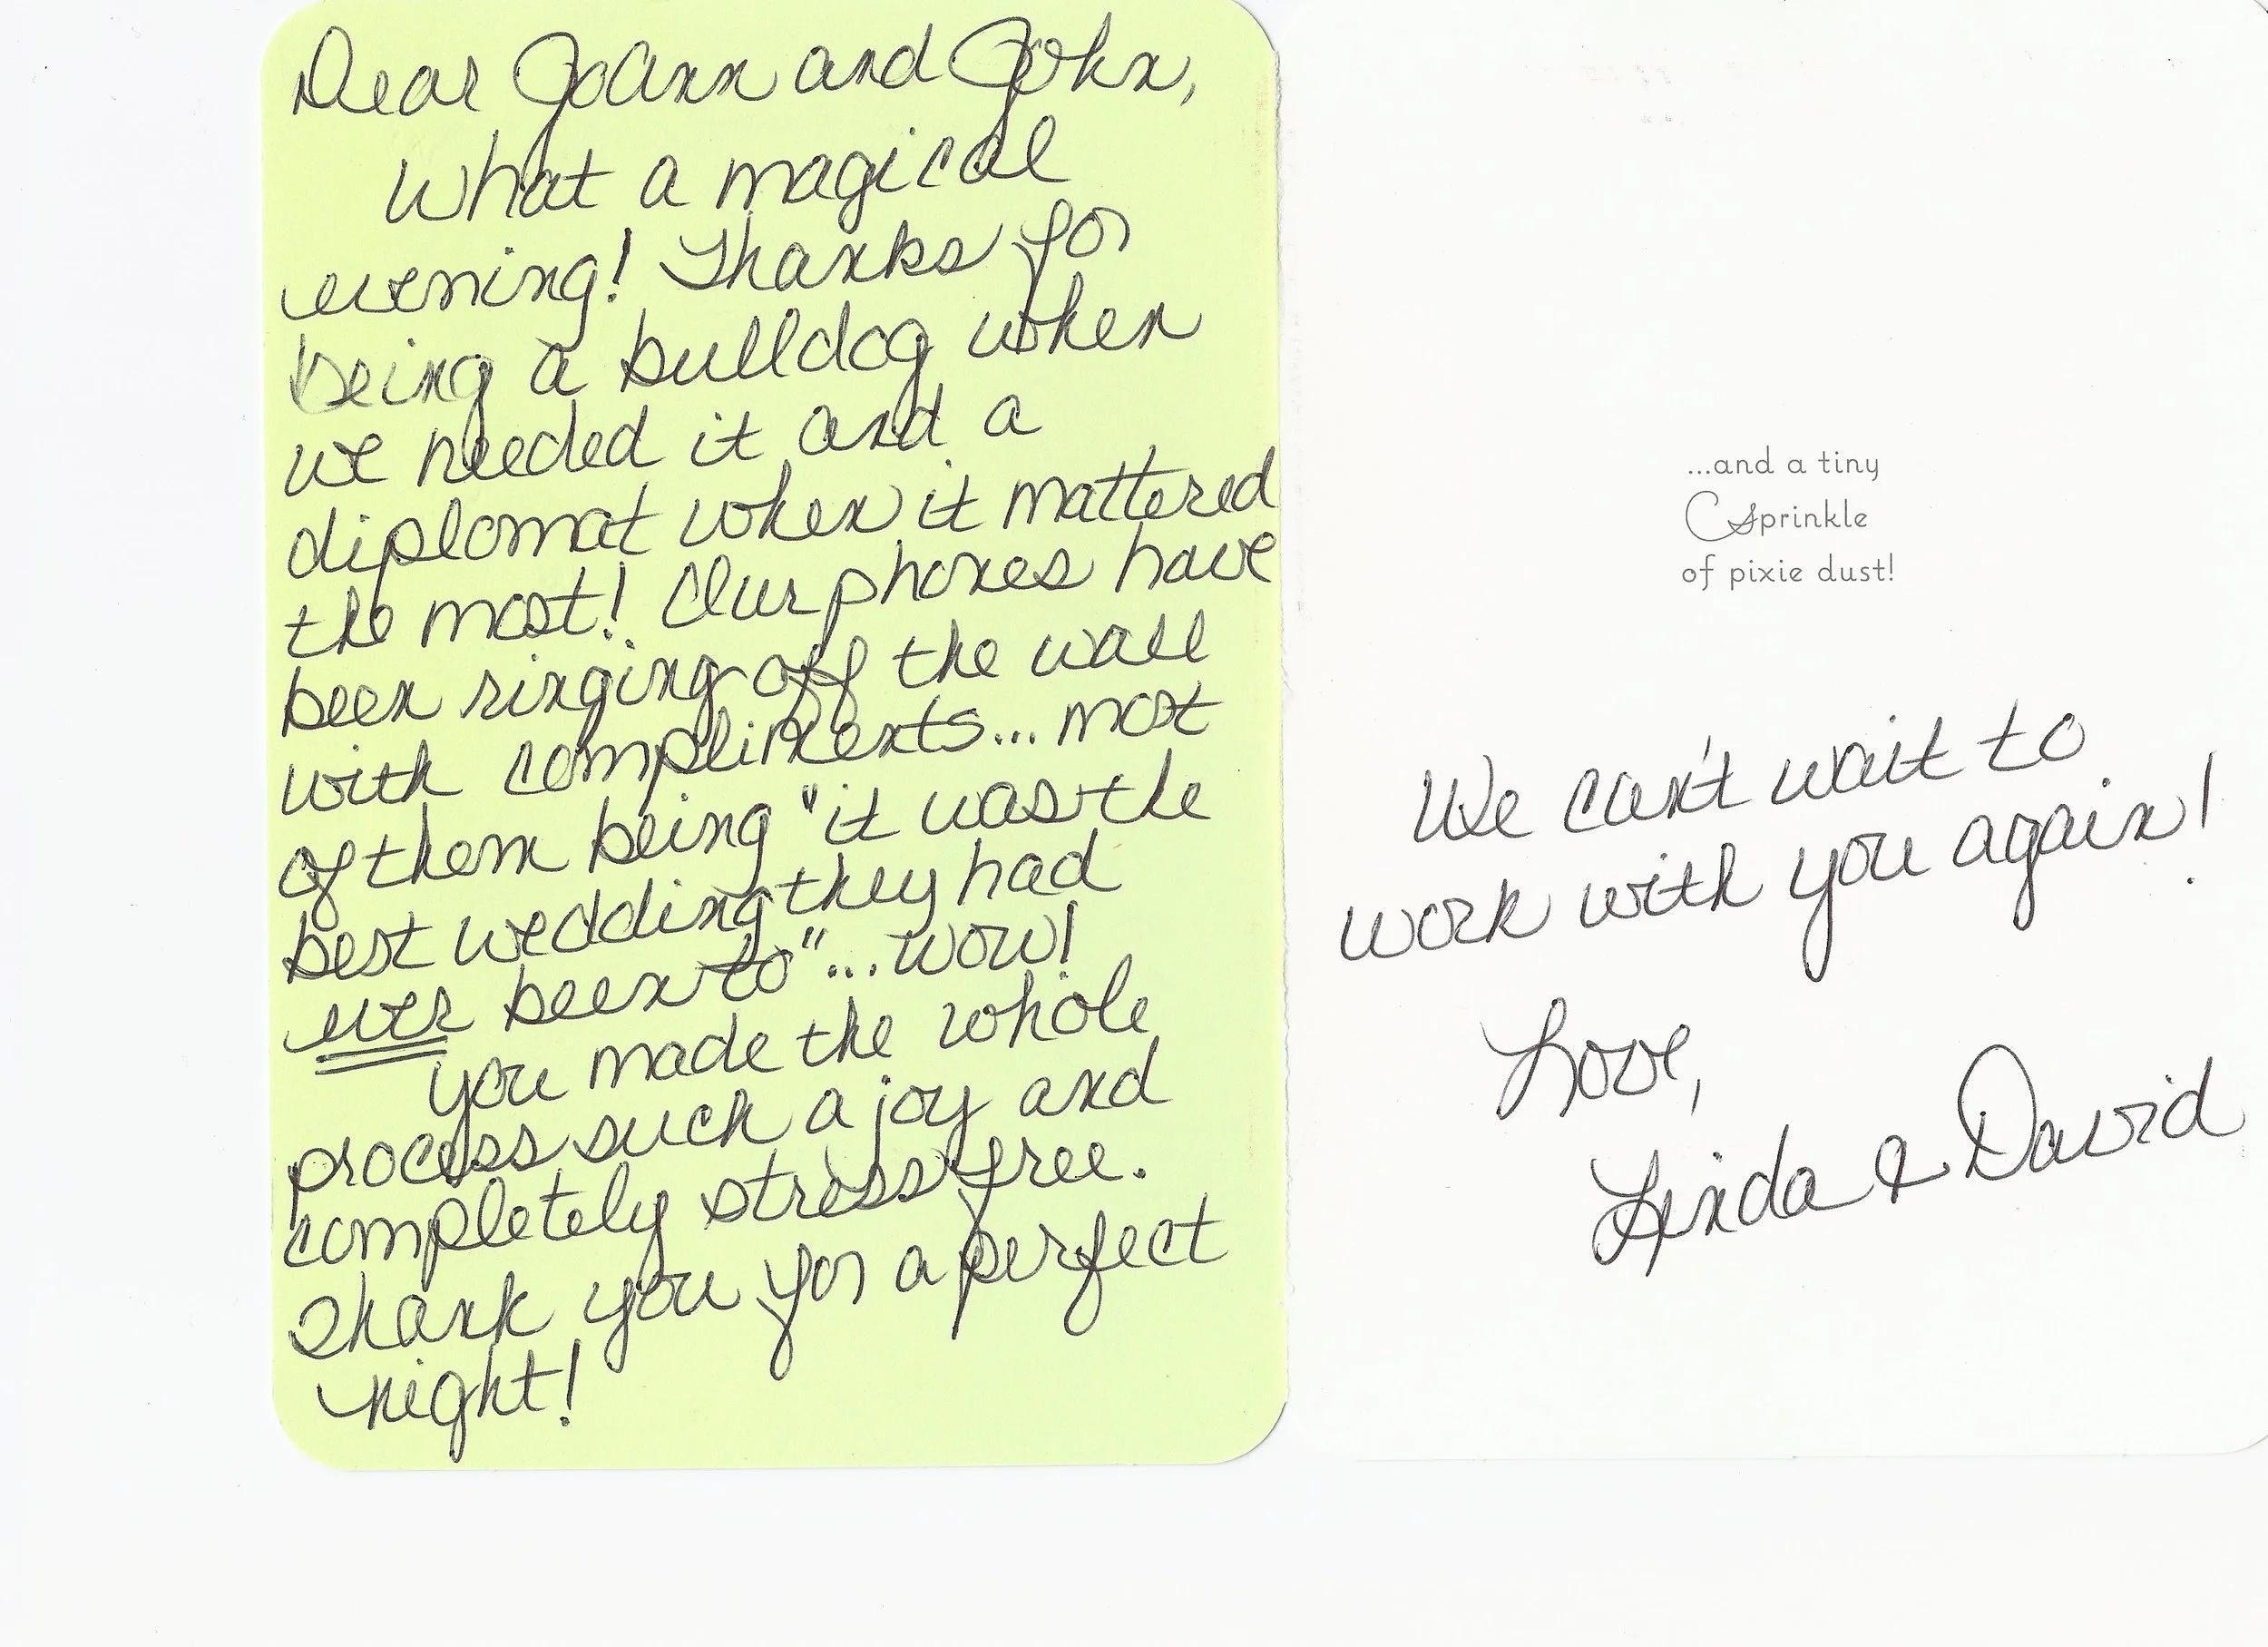 Dear JoAnn and John,
What a magical
evening! Thanks for
being a bulldog when
we needed it and a
diplomat when it mattered
the most! Our phones have
been ringing off the wall
with compliments... most
of them being "it was the
best wedding they had
ever been to"... wow!
You made the whole
process such a joy and
completely stress free.
Thank you for a perfect
night!
...and a tiny
Sprinkle
of pixie dust!
We can't wait to
work with you again!
Love,
Linda & David